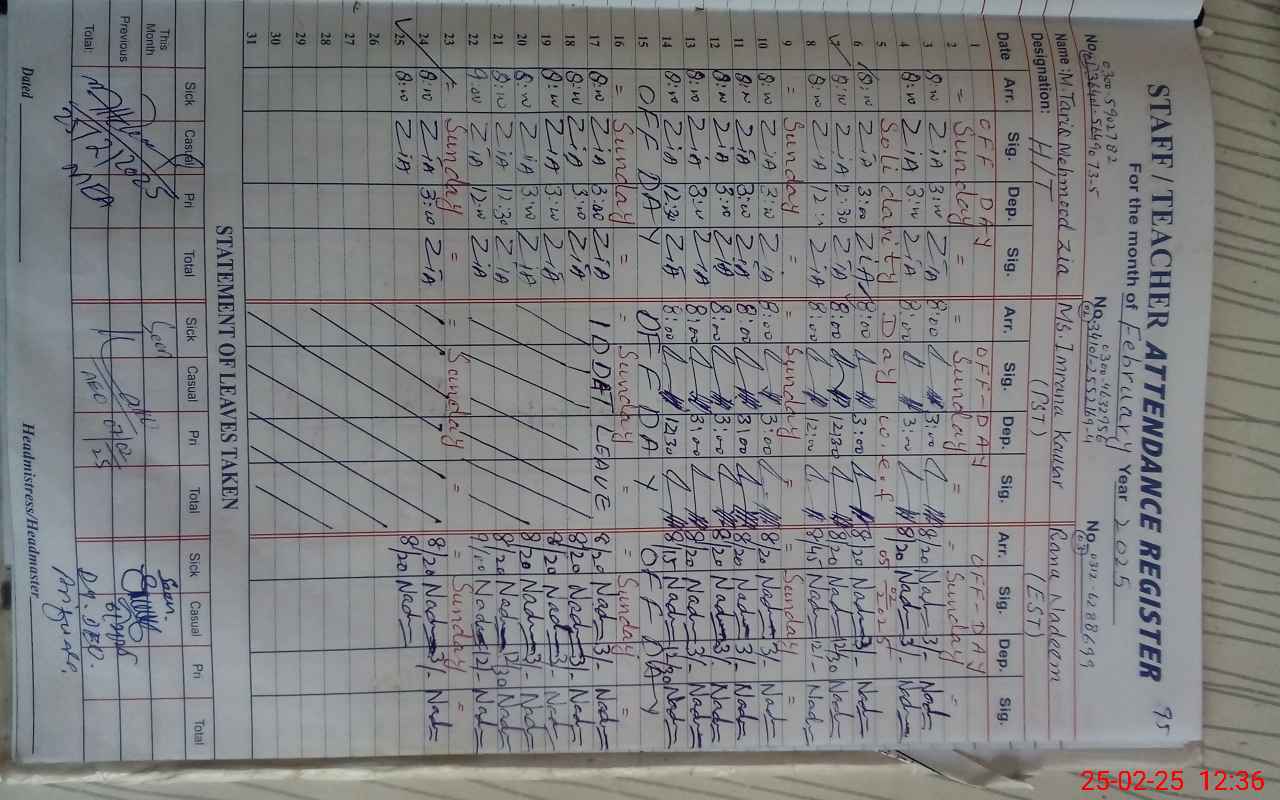 95
STAFF / TEACHER ATTENDANCE REGISTER
For the month of February Year 2025
Name: M. Tariq Mehmood Zia Ms. Imrana Kausar Rana Nadeem
Designation: H/T (PST) (EST)
Date Arr. Sig. Dep. Sig. Arr. Sig. Dep. Sig. Arr. Sig. Dep. Sig.
1 OFF DAY OFF-DAY OFF-DAY
2 = Sunday = = Sunday = = Sunday =
3 8:10 ZiA 3:10 ZiA 8:00 3:00 8/20 Nad 3/- Nad
4 8:10 ZiA 3:10 ZiA 8:00 3:00 8/20 Nad 3/- Nad
5 Solidarity Day 05/02/2025
6 8:10 ZiA 3:00 ZiA 8:00 3:00 8/20 Nad 3/- Nad
7 8:10 ZiA 2:30 ZiA 8:00 12:30 8/20 Nad 12/30 Nad
8 8:10 ZiA 12:10 ZiA 8:00 12:00 8/45 Nad 12/- Nad
9 = Sunday = = Sunday = = Sunday =
10 8:10 ZiA 3:10 ZiA 8:00 3:00 8/20 Nad 3/- Nad
11 8:10 ZiA 3:10 ZiA 8:00 3:00 8/20 Nad 3/- Nad
12 8:10 ZiA 3:10 ZiA 8:00 3:00 8/20 Nad 3/- Nad
13 8:10 ZiA 3:10 ZiA 8:00 3:00 8/20 Nad 3/- Nad
14 8:10 ZiA 12:30 ZiA 8:00 12:30 8/15 Nad 12/30 Nad
15 OFF DAY OFF DAY OFF DAY
16 = Sunday = = Sunday = = Sunday =
17 8:10 ZiA 3:00 ZiA 1 DAY LEAVE 8/20 Nad 3/- Nad
18 8:10 ZiA 3:10 ZiA 8/20 Nad 3/- Nad
19 8:10 ZiA 3:10 ZiA 8/20 Nad 3/- Nad
20 8:10 ZiA 3:10 ZiA 8/20 Nad 3/- Nad
21 8:10 ZiA 12:30 ZiA 8/20 Nad 12/30 Nad
22 9:00 ZiA 12:10 ZiA 9/00 Nad 12/- Nad
23 = Sunday = = Sunday = = Sunday =
24 8:10 ZiA 3:10 ZiA 8/20 Nad 3/- Nad
25 8:10 ZiA 8/20 Nad
26
27
28
29
30
31
STATEMENT OF LEAVES TAKEN
Sick Casual Pri Total Sick Casual Pri Total Sick Casual Pri Total
This Month Seen Seen.
Previous
Total: AEO Dy. DEO.
Dated Headmistress/Headmaster
25-02-25 12:36